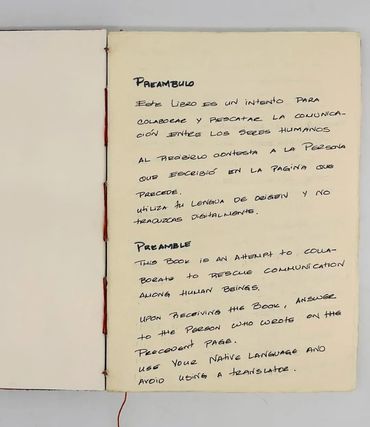 PREAMBULO
ESTE LIBRO ES UN INTENTO PARA
COLABORAR Y RESCATAR LA COMUNICA-
CIÓN ENTRE LOS SERES HUMANOS
AL RECIBIRLO CONTESTA A LA PERSONA
QUE ESCRIBIÓ EN LA PAGINA QUE
PRECEDE.
UTILIZA TU LENGUA DE ORIGEN Y NO
TRADUZCAS DIGITALMENTE.
PREAMBLE
THIS BOOK IS AN ATTEMPT TO COLLA-
BORATE TO RESCUE COMMUNICATION
AMONG HUMAN BEINGS.
UPON RECEIVING THE BOOK, ANSWER
TO THE PERSON WHO WROTE ON THE
PRECEDENT PAGE.
USE YOUR NATIVE LANGUAGE AND
AVOID USING A TRANSLATOR.